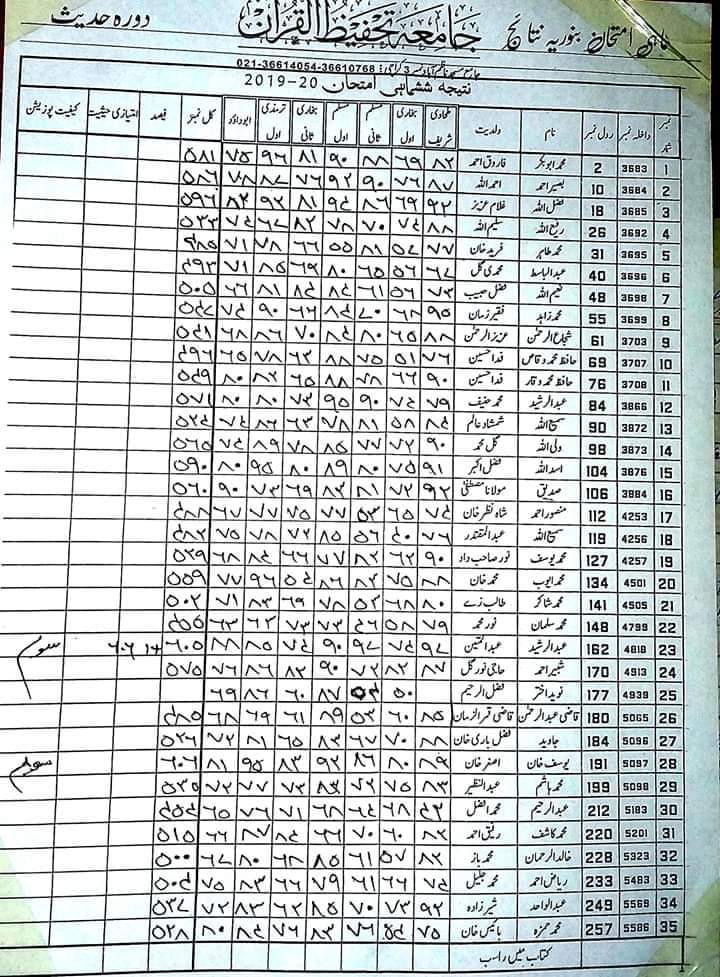 سہ ماہی امتحان بنوریہ نتائج جامعہ تحفیظ القرآن دورہ حدیث
جامع مسجد ناظم آباد نمبر 3 کراچی: 36610768-36614054-021
نتیجہ ششماہی امتحان 20-2019
نمبر شمار داخلہ نمبر رول نمبر نام ولدیت طحاوی شریف بخاری اول مسلم ثانی مسلم اول بخاری ثانی ترمذی اول ابوداؤد کل نمبر فیصد امتیازی حیثیت کیفیت پوزیشن
1 3683 2 محمد ابوبکر فاروق احمد ۸۲ ۶۹ ۸۸ ۹۰ ۸۱ ۹۶ ۷۵ ۵۸۱
2 3684 10 بصیر احمد احمد اللہ ۸۷ ۷۶ ۹۰ ۹۲ ۷۶ ۸۷ ۷۸ ۵۸۶
3 3685 18 فضل اللہ غلام عزیز ۹۲ ۶۹ ۸۶ ۹۴ ۸۱ ۹۲ ۸۲ ۵۹۶
4 3692 26 ربیع اللہ سلیم اللہ ۸۸ ۷۴ ۷۰ ۷۸ ۸۲ ۶۷ ۷۴ ۵۳۳
5 3695 31 محمد طاہر فرید خان ۷۷ ۵۷ ۸۱ ۵۵ ۶۶ ۷۸ ۷۱ ۴۸۵
6 3696 40 عبدالباسط محمدی گل ۶۷ ۵۶ ۶۵ ۸۰ ۶۹ ۸۵ ۷۱ ۴۹۳
7 3698 48 نعیم اللہ فضل حبیب ۷۳ ۵۶ ۶۱ ۸۴ ۸۴ ۸۱ ۶۶ ۵۰۵
8 3699 55 محمد زاہد فقیر زمان ۹۵ ۶۸ ۷۰ ۸۴ ۶۶ ۹۰ ۷۴ ۵۴۷
9 3703 61 شجاع الرحمٰن عزیز الرحمٰن ۸۸ ۶۵ ۸۰ ۸۴ ۷۰ ۸۶ ۶۸ ۵۴۱
10 3707 69 حافظ محمد وقاص فدا حسین ۷۶ ۵۱ ۷۵ ۸۸ ۶۳ ۷۸ ۶۵ ۴۹۶
11 3708 76 حافظ محمد وقار فدا حسین ۹۰ ۶۶ ۷۸ ۸۸ ۶۵ ۸۲ ۸۰ ۵۴۹
12 3866 84 عبدالرشید محمد حنیف ۷۹ ۷۴ ۹۰ ۹۵ ۷۳ ۸۰ ۸۰ ۵۷۱
13 3872 90 سمیع اللہ شمشاد عالم ۸۴ ۵۸ ۸۱ ۷۸ ۶۳ ۸۶ ۷۴ ۵۲۴
14 3873 98 ولی اللہ گل محمد ۹۰ ۷۲ ۷۷ ۸۵ ۷۸ ۸۹ ۷۴ ۵۶۵
15 3876 104 اسد اللہ فضل اکبر ۹۱ ۷۵ ۸۰ ۸۹ ۸۰ ۹۵ ۸۰ ۵۹۰
16 3884 106 صدیق مولانا مصطفیٰ ۹۲ ۷۲ ۸۱ ۸۳ ۶۹ ۷۳ ۹۰ ۵۶۰
17 4253 112 منصور احمد شاہ نظر خان ۷۴ ۶۵ ۵۳ ۷۷ ۷۵ ۷۷ ۶۷ ۴۸۸
18 4256 119 سمیع اللہ عبدالمقتدر ۷۹ ۴۰ ۵۶ ۸۵ ۷۲ ۷۵ ۷۵ ۴۸۲
19 4257 127 محمد یوسف نور صاحب داد ۹۰ ۶۲ ۸۲ ۷۷ ۶۶ ۸۴ ۶۸ ۵۲۹
20 4501 134 محمد ایوب محمد خان ۸۸ ۷۵ ۸۲ ۸۶ ۵۴ ۹۶ ۷۷ ۵۵۹
21 4505 141 محمد شاکر طالب زے ۸۰ ۶۸ ۵۲ ۷۸ ۶۹ ۸۳ ۷۱ ۵۰۲
22 4799 148 محمد سلمان نور محمد ۷۹ ۵۸ ۴۶ ۷۳ ۷۳ ۶۲ ۶۳ ۴۵۵
23 4818 162 عبدالرشید عبدالمتین ۹۷ ۷۴ ۹۷ ۹۰ ۷۴ ۸۵ ۸۸ ۶۰۵ سوم
24 4913 170 شبیر احمد حاجی نور گل ۸۷ ۸۲ ۷۲ ۹۰ ۸۲ ۸۶ ۷۶ ۵۷۵
25 4939 177 نوید اختر فضل الرحیم ۵۰ ۵۴ ۸۷ ۶۰ ۸۶ ۶۹
26 5065 180 قاضی عبدالرحمٰن قاضی قمر الزمان ۸۵ ۶۰ ۵۳ ۸۹ ۶۱ ۶۹ ۶۸ ۴۸۵
27 5096 184 جاوید فضل باری خان ۸۸ ۷۰ ۶۷ ۸۳ ۶۵ ۸۱ ۷۲ ۵۲۶
28 5097 191 یوسف خان اصغر خان ۸۹ ۸۰ ۸۶ ۹۲ ۸۳ ۹۵ ۸۱ ۶۰۶ سوم
29 5098 199 محمد ہاشم عبدالنظیر ۸۳ ۷۵ ۷۲ ۸۳ ۷۳ ۷۷ ۷۲ ۵۳۵
30 5183 212 عبدالرحیم محمد افضل ۴۲ ۶۸ ۶۴ ۶۸ ۷۱ ۷۶ ۶۵ ۴۵۴
31 5201 220 محمد کاشف رفیق احمد ۸۲ ۶۰ ۷۰ ۶۶ ۸۴ ۸۷ ۶۶ ۵۱۵
32 5323 228 خالد الرحمان محمد باز ۸۲ ۵۷ ۶۱ ۸۵ ۶۸ ۸۰ ۶۷ ۵۰۰
33 5483 233 ریاض احمد محمد جلیل ۷۴ ۶۶ ۶۱ ۷۹ ۶۶ ۸۳ ۷۵ ۵۰۴
34 5569 249 عبدالواحد شیرزادہ ۹۲ ۷۳ ۷۰ ۸۵ ۶۲ ۸۳ ۷۲ ۵۳۷
35 5586 257 محمد حمزہ بائیس خان ۷۵ ۵۴ ۷۶ ۸۳ ۷۶ ۸۴ ۸۰ ۵۲۸
کتاب میں راسب